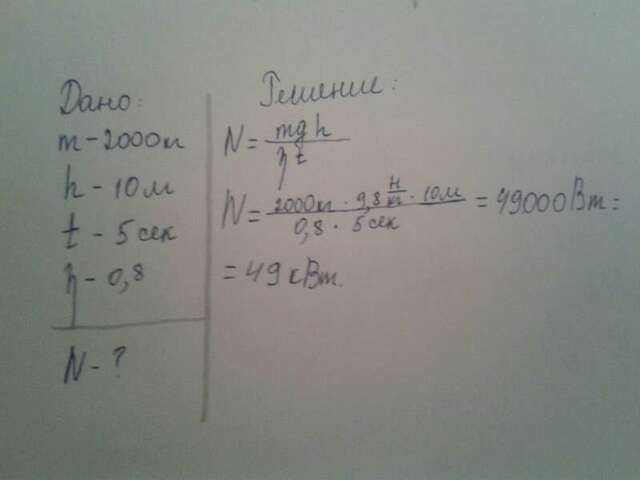 Дано:
m - 2000кг
h - 10м
t - 5 сек
η - 0,8
N - ?
Решение:
N = mgh / η t
N = 2000кг · 9,8 Н/кг · 10м / 0,8 · 5 сек = 49000 Вт =
= 49 кВт.